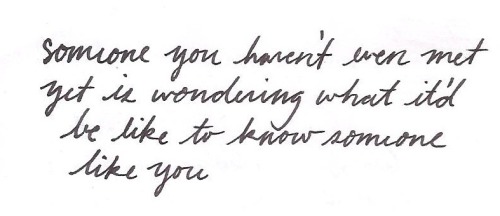 someone you haven't even met
yet is wondering what it'd
be like to know someone
like you